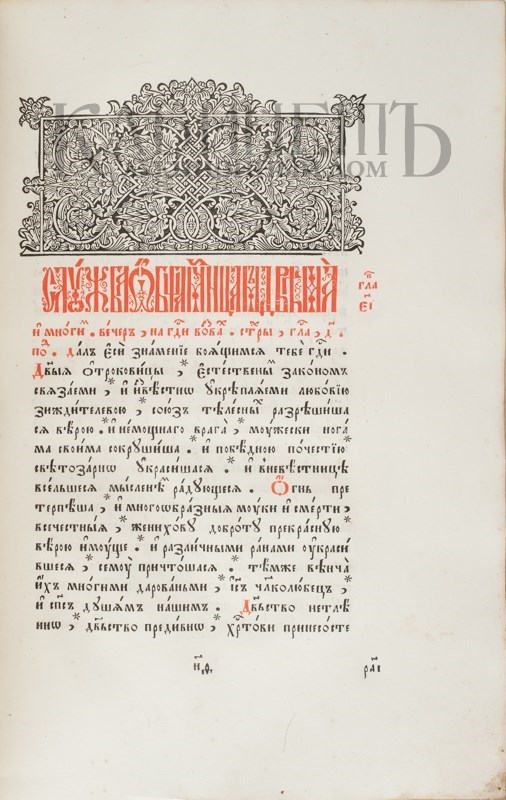 КАБИНЕТЪ
гла҃
є҃і
и҆ мно́гиⷨ. ве́черъ, на гдⷭ҇и возваⷯ. стⷯры, гла҃, д҃.
поⷣ. Далъ є҆сѝ зна́менїе боѧ́щимсѧ тебѐ гдⷭ҇и.
Двы́ѧ ѻ҆трокови́цы, є҆сте́ственыⷨ зако́номъ
свѧ́заеми, и҆ и҆звѣ́стнѡ ᲂу҆крѣплѧ́еми любо́вїю
зижди́телевою, сою́зъ тѣле́сныⷯ разрѣши́ша
сѧ вѣ́рою. и҆ не́мощнаго врага̀, моу́жески нога́
ма свои́ма сокруши́ша. и҆ побѣ́дною по́честїю
свѣтоза́рнѡ ᲂу҆краси́шасѧ. и҆ в̾невѣ́стницѣ
всельшесѧ мы́сленеⷨ ра́дующесѧ. Ѻ҆́гнь пре
терпѣ́ша, и҆ многоѡбра́зныѧ моу́ки и҆ сме́рти,
всече́стныѧ, женихо́ву добро́ту прекра́сную
вѣ́рою и҆моу́ще. и҆ разли́чными ра́нами ᲂу҆краси́
вшесѧ, семоу̀ причто́шасѧ. тѣ́мже вѣнча̀
и҆́хъ мно́гими дарова́ньми, і҆с҃ъ чл҃колю́бецъ,
и҆ сп҃съ душа́мъ на́шимъ. Дв҃ьство нетлѣ́
ннѡ, дв҃ьство преди́внѡ, хрⷭ҇то́ви принесо́сте